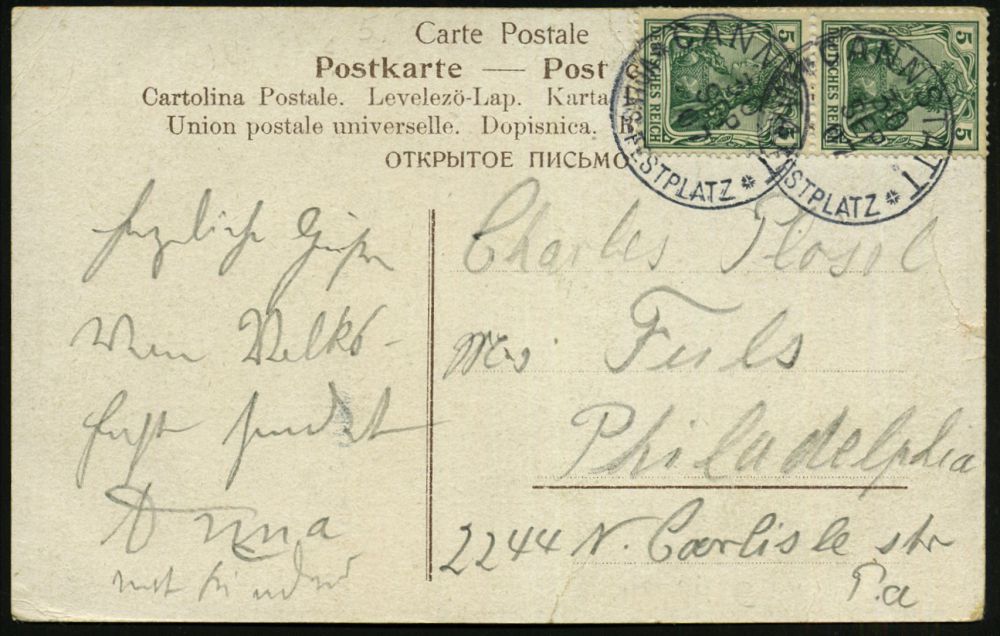 Carte Postale
Postkarte — Post
Cartolina Postale. Levelezö-Lap. Karta
Union postale universelle. Dopisnica.
ОТКРЫТОЕ ПИСЬМО
5 DEUTSCHES REICH 5
5 DEUTSCHES REICH 5
CANNSTATT
30 SEP 07
FESTPLATZ
CANNSTATT
30 SEP 07
FESTPLATZ
herzliche Grüße
vom Volks-
fest sendet
Anna
mit Kinder
Charles
Mrs. Fuls
Philadelphia
2244 N. Carlisle str
P.a